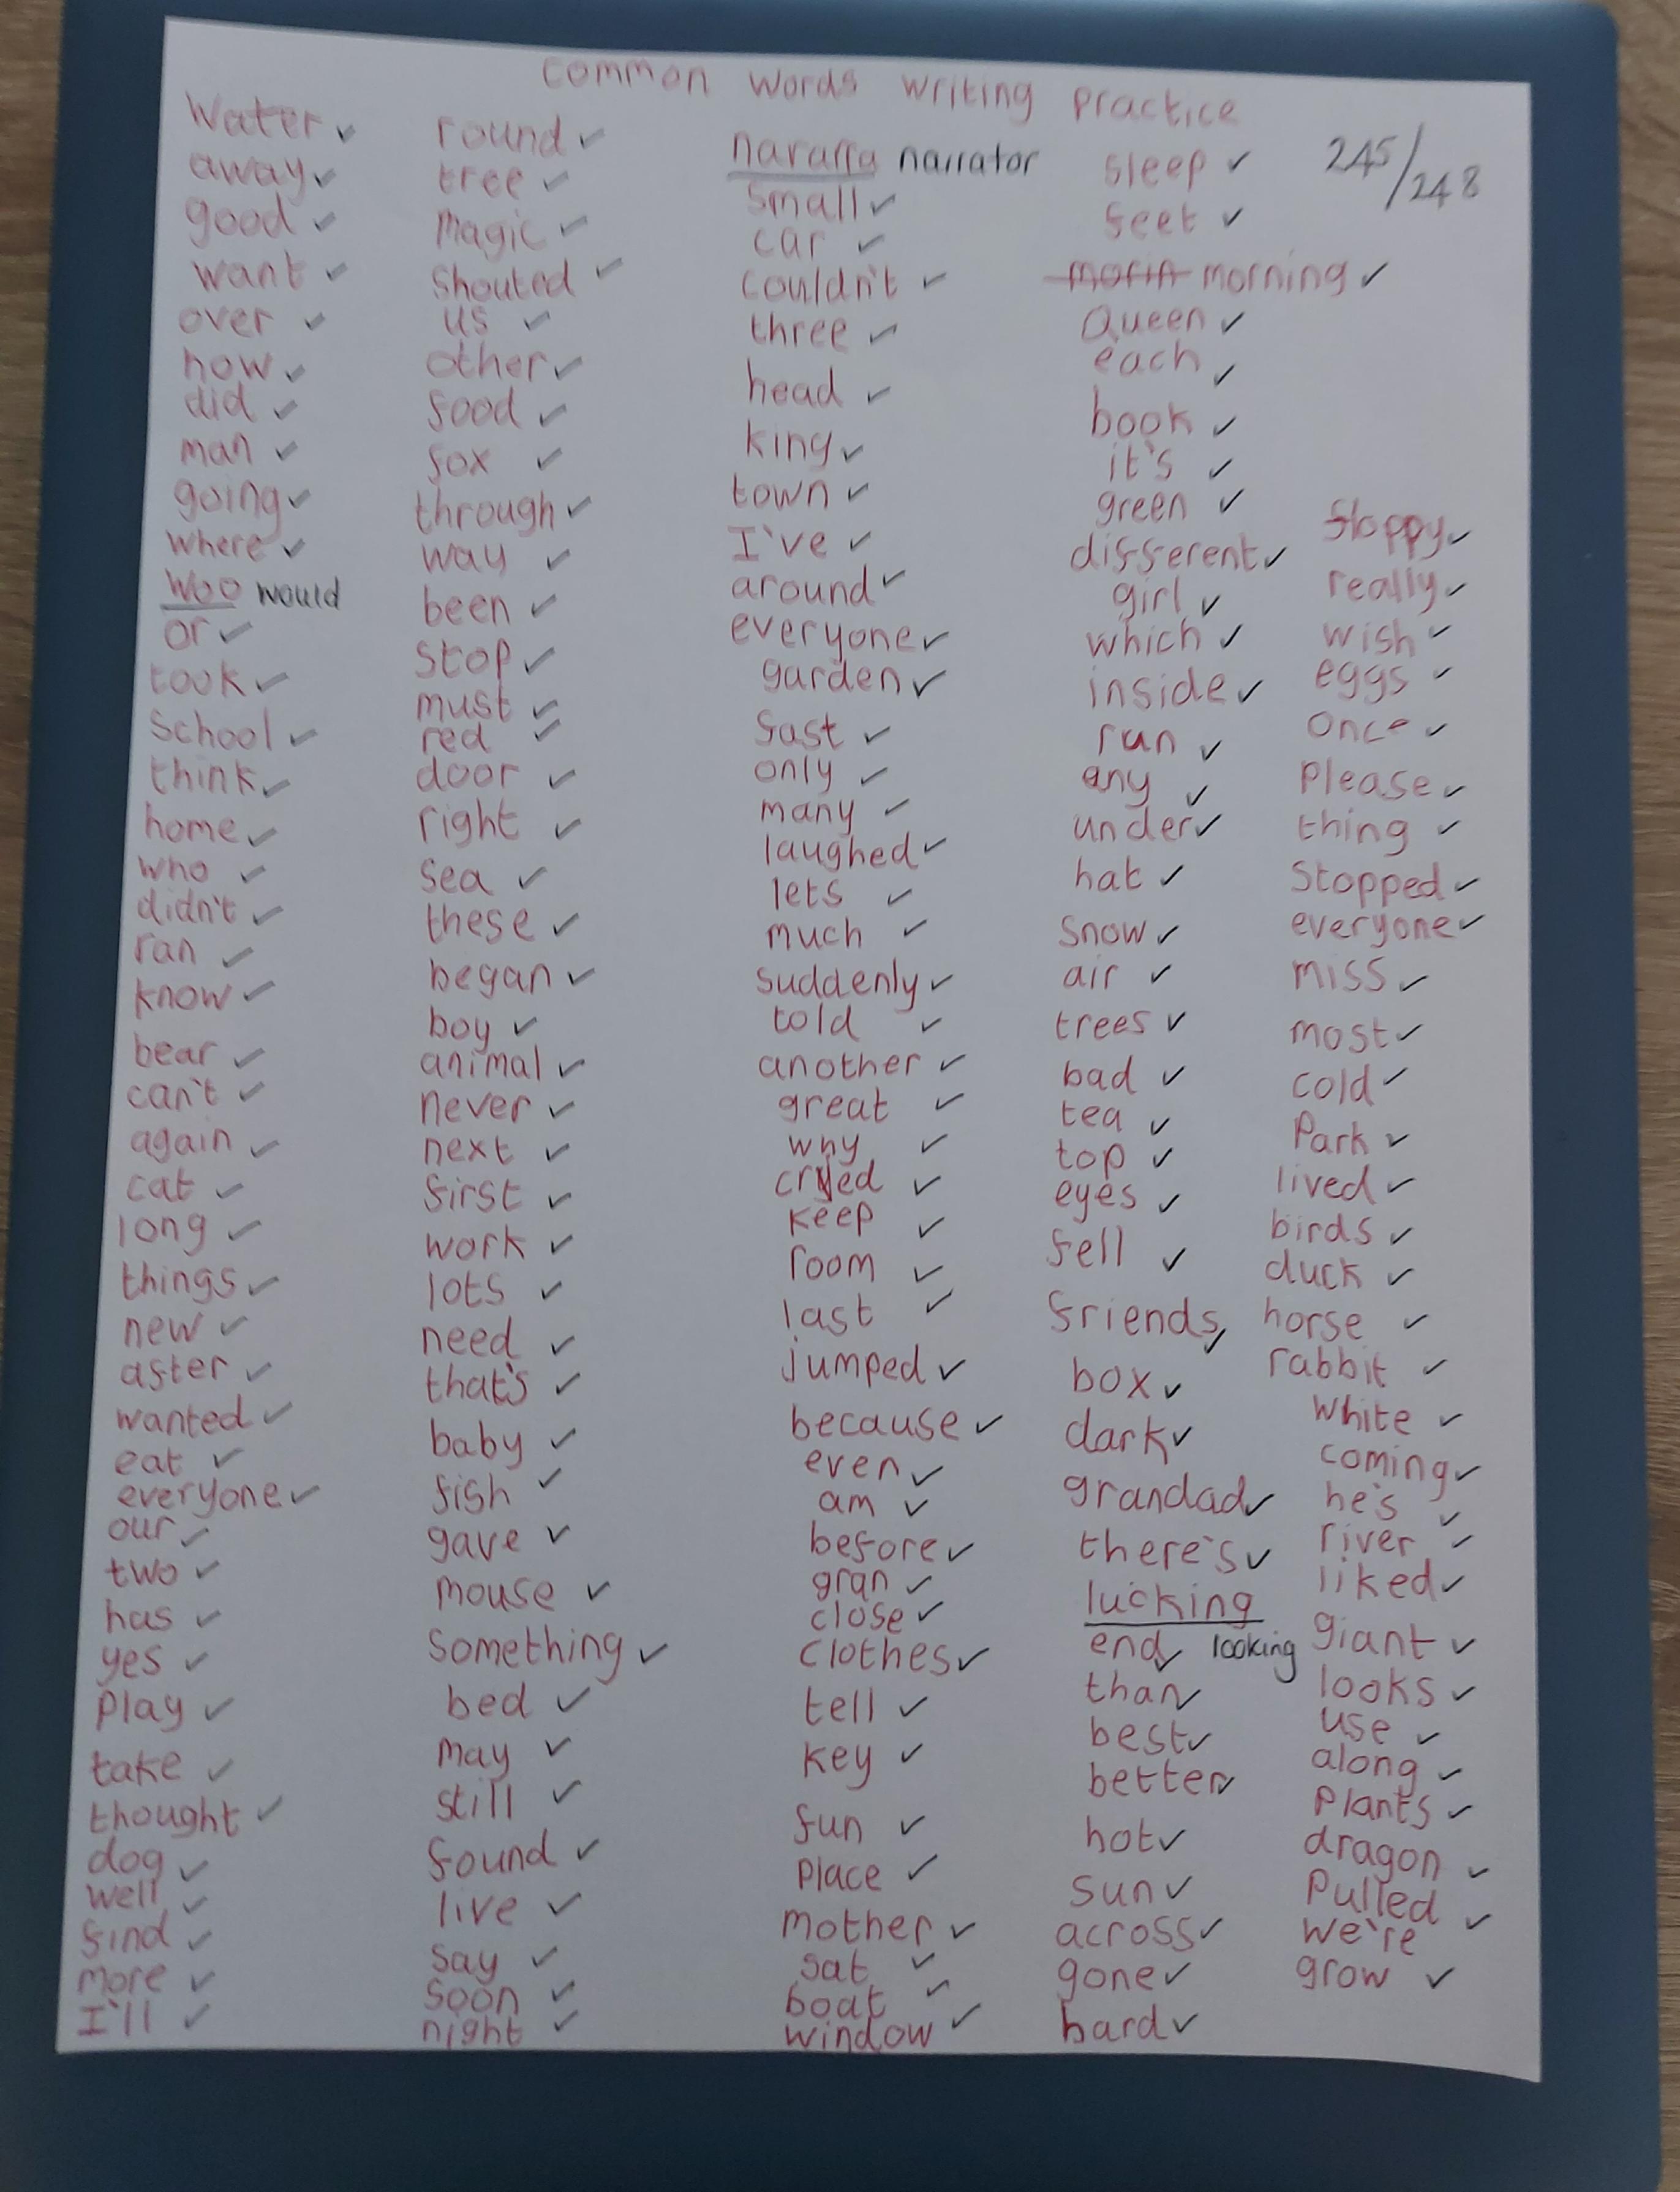 common words writing practice
245/248
Water
away
good
want
over
how
did
man
going
where
woo would
or
took
school
think
home
who
didn't
ran
know
bear
can't
again
cat
long
things
new
after
wanted
eat
everyone
our
two
has
yes
play
take
thought
dog
well
find
more
I'll
round
tree
magic
shouted
us
other
food
fox
through
way
been
stop
must
red
door
right
sea
these
began
boy
animal
never
next
first
work
lots
need
that's
baby
fish
gave
mouse
something
bed
may
still
found
live
say
soon
night
nararra narrator
small
car
couldn't
three
head
king
town
I've
around
everyone
garden
fast
only
many
laughed
lets
much
suddenly
told
another
great
why
cried
keep
room
last
jumped
because
even
am
before
gran
close
clothes
tell
key
fun
place
mother
sat
boat
window
sleep
feet
morning
Queen
each
book
it's
green
different
girl
which
inside
run
any
under
hat
snow
air
trees
bad
tea
top
eyes
fell
friends
box
dark
grandad
there's
lucking
end looking
than
best
better
hot
sun
across
gone
hard
floppy
really
wish
eggs
once
Please
thing
stopped
everyone
miss
most
cold
Park
lived
birds
duck
horse
rabbit
white
coming
he's
river
liked
giant
looks
use
along
Plants
dragon
Pulled
we're
grow